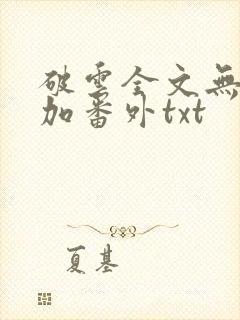 破雲全文無
加番外txt
夏基